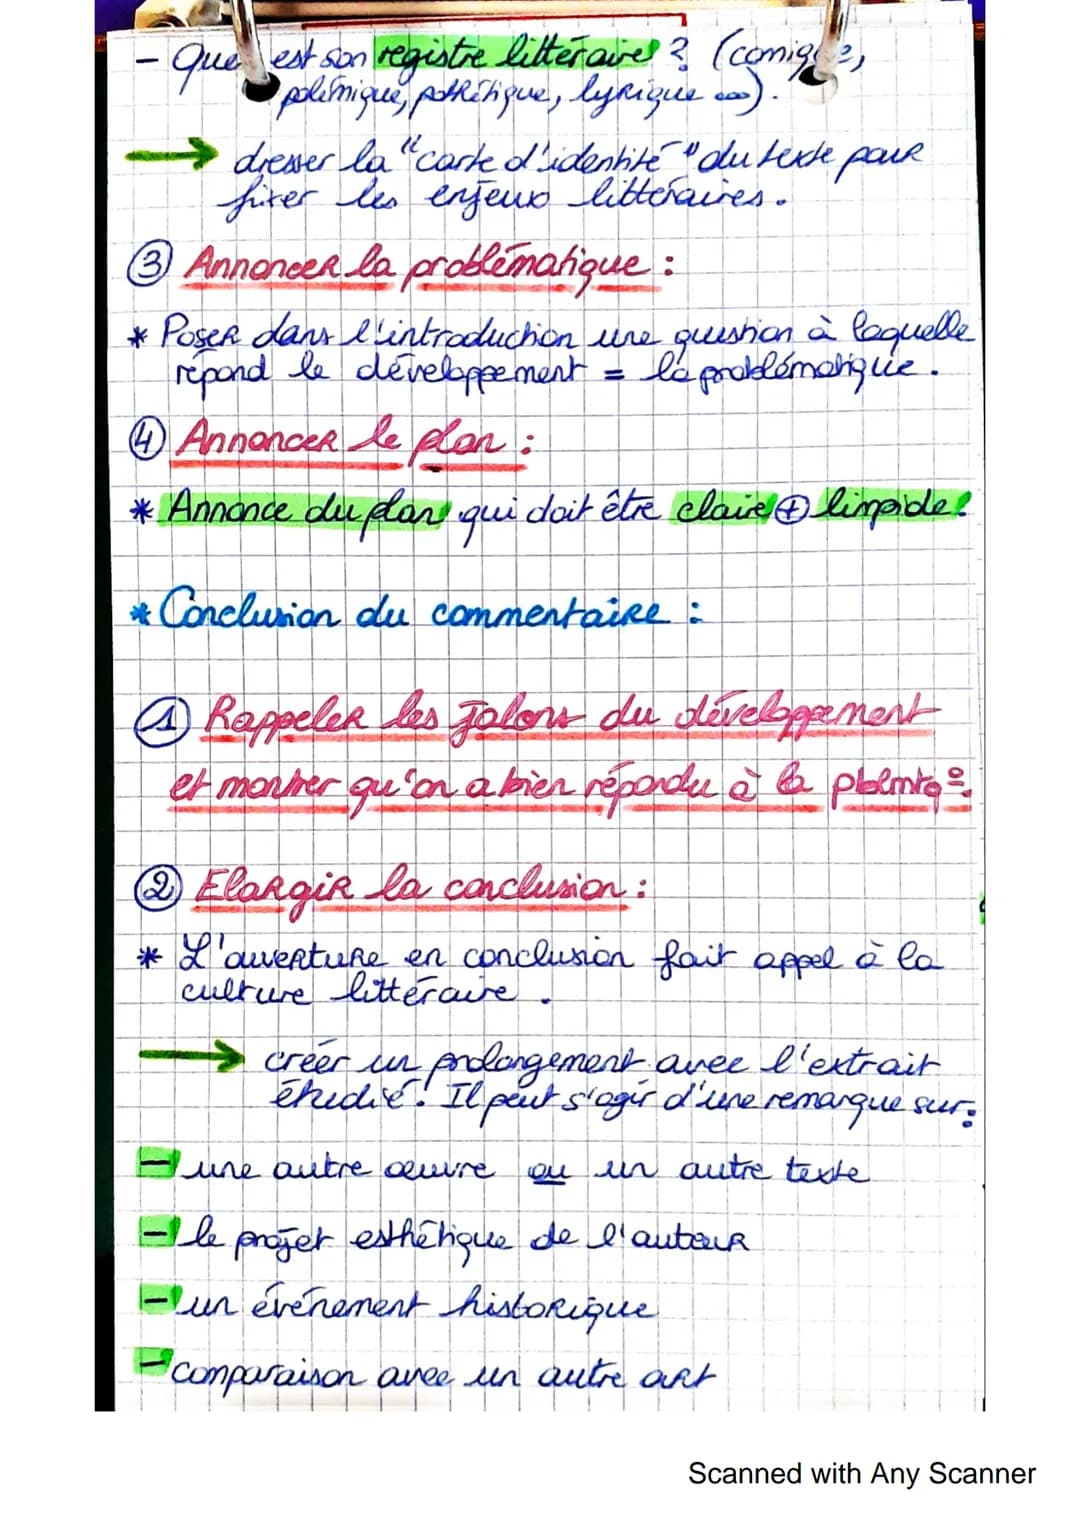 - Quel est son registre littéraire ? (comique,
polémique, pathétique, lyrique ...).
→ dresser la "carte d'identité" du texte pour
fixer les enjeux littéraires.
③ Annoncer la problématique :
* Poser dans l'introduction une question à laquelle
répond le développement = la problématique.
④ Annoncer le plan :
* Annonce du plan qui doit être claire ⊕ limpide !
* Conclusion du commentaire :
① Rappeler les jalons du développement
et montrer qu'on a bien répondu à la pblmtq°.
② Elargir la conclusion :
* L'ouverture en conclusion fait appel à la
culture littéraire.
→ créer un prolongement avec l'extrait
étudié ! Il peut s'agir d'une remarque sur :
- une autre œuvre ou un autre texte
- le projet esthétique de l'auteur
- un événement historique
- comparaison avec un autre art
Scanned with Any Scanner